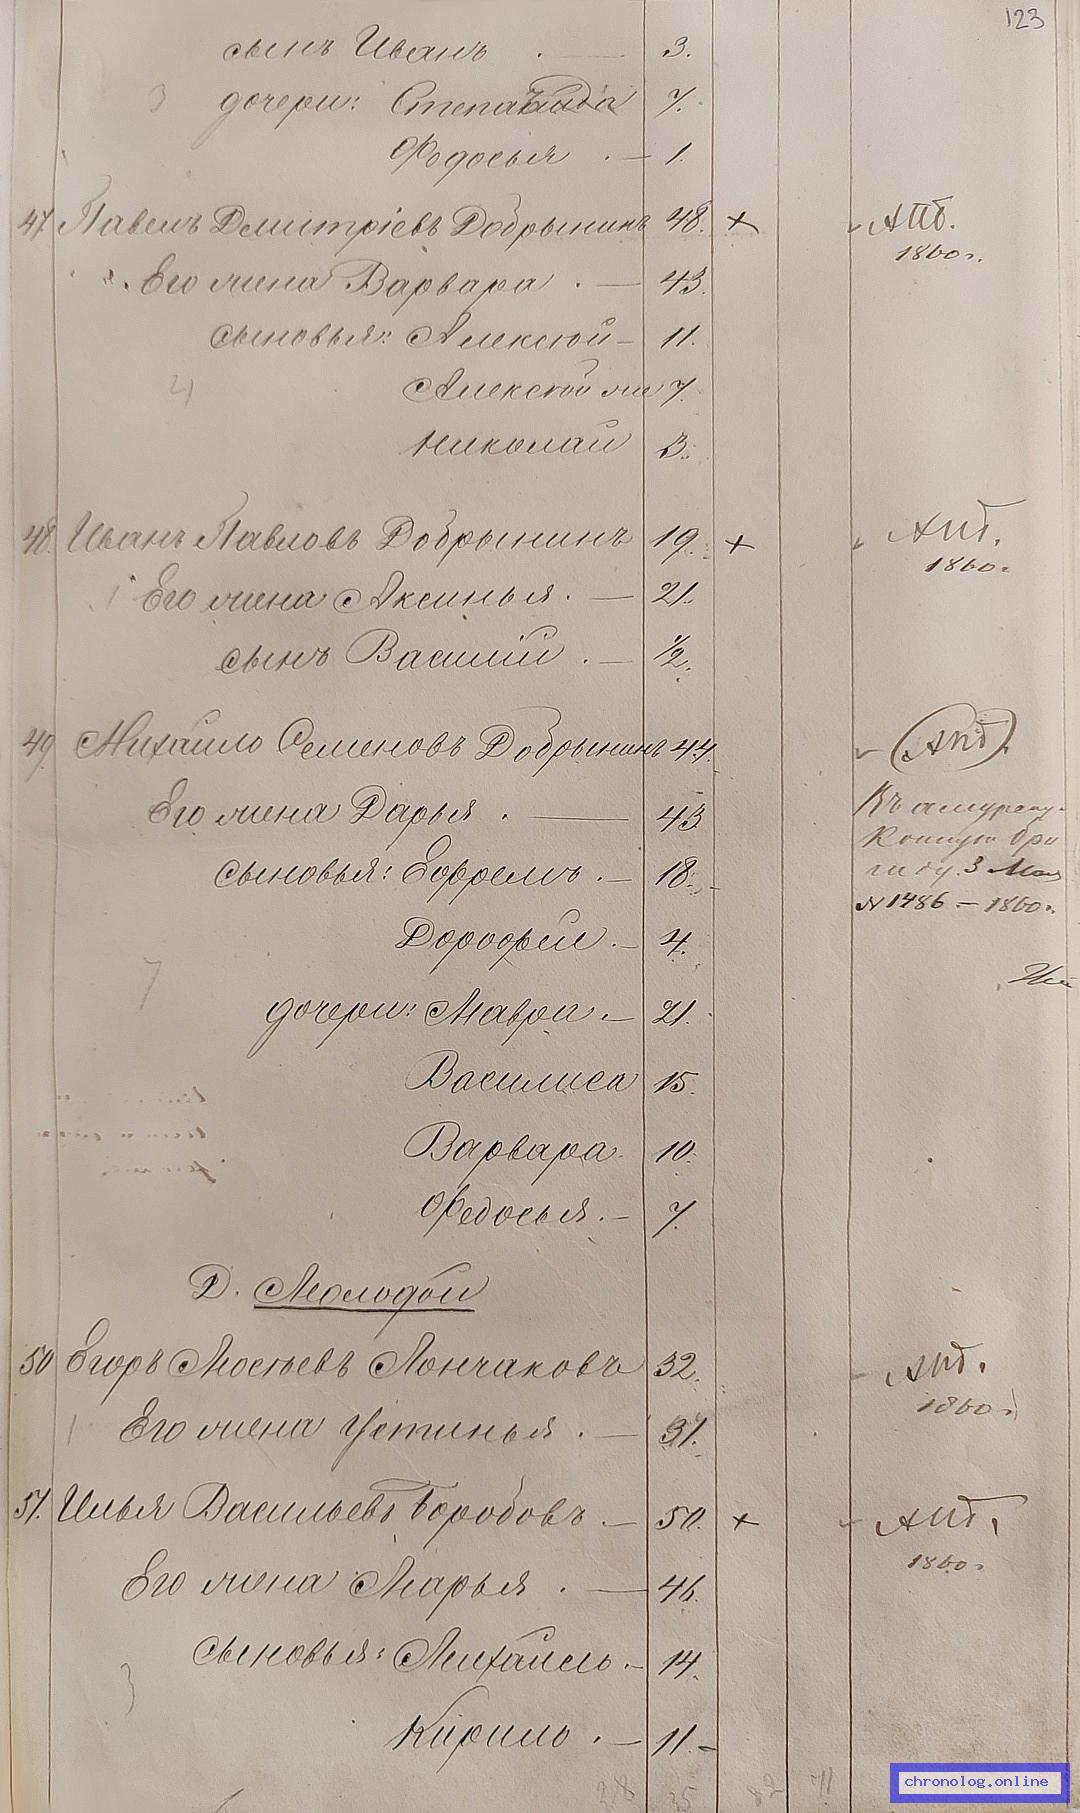 123
сынъ Иванъ . — 3.
3 дочери: Степанида 7.
Федосья . — 1.
47. Павелъ Дмитріевъ Добрынинъ 48. × АПб.
1860г.
Его жена Варвара . — 43.
сыновья: Алексѣй — 11.
4 Алексѣй же 7.
Николай 3.
48. Иванъ Павловъ Добрынинъ 19. × АПб.
1860г
1 Его жена Аксинья . — 21.
сынъ Василій . — ½.
49. Михайло Семеновъ Добрынинъ 44. АПб.
Его жена Дарья . — 43
Къ амурску
Конную бри
сыновья: Ефремъ . — 18.
гаду. 3 Мая
№ 1486 — 1860г.
Дорофей . — 4.
7
дочери: Мавра . — 21.
Василиса 15.
Варвара 10.
Федосья . — 7.
Д. Молодой
50 Егоръ Мосѣевъ Лончаковъ 32. АПб.
1860г
1 Его жена Устинья . — 31.
51. Илья Васильевъ Коробовъ . — 50. × АПб.
1860г
Его жена Марья . — 46.
сыновья: Михайло . — 14.
3
Кирило . — 11. —
28 35 82 71
chronolog.online